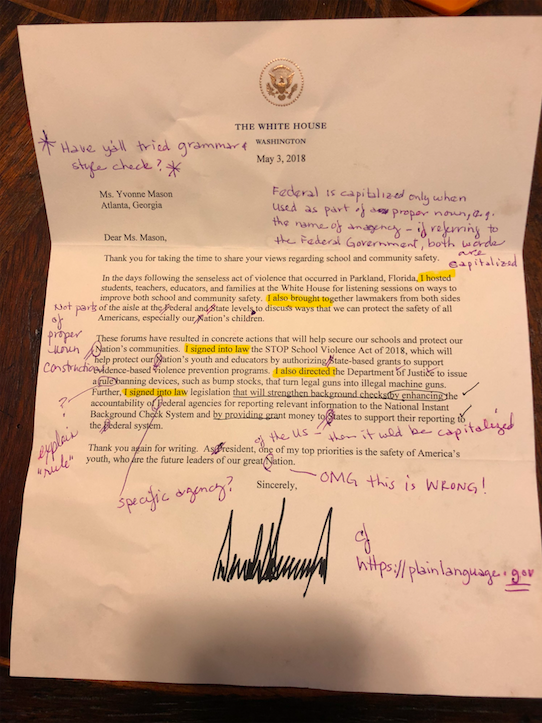 THE WHITE HOUSE
WASHINGTON
May 3, 2018
* Have y'all tried grammar &
style check? *
Ms. Yvonne Mason
Atlanta, Georgia
Federal is capitalized only when
used as part of a proper noun, e.g.
the name of an agency - if referring to
the Federal Government, both words
are
capitalized
Dear Ms. Mason,
Thank you for taking the time to share your views regarding school and community safety.
In the days following the senseless act of violence that occurred in Parkland, Florida, I hosted
students, teachers, educators, and families at the White House for listening sessions on ways to
improve both school and community safety. I also brought together lawmakers from both sides
of the aisle at the Federal and State levels to discuss ways that we can protect the safety of all
Americans, especially our Nation's children.
Not parts
of
proper
noun
construction
These forums have resulted in concrete actions that will help secure our schools and protect our
Nation's communities. I signed into law the STOP School Violence Act of 2018, which will
help protect our Nation's youth and educators by authorizing State-based grants to support
evidence-based violence prevention programs. I also directed the Department of Justice to issue
a rule banning devices, such as bump stocks, that turn legal guns into illegal machine guns.
Further, I signed into law legislation that will strengthen background checks by enhancing the
accountability of Federal agencies for reporting relevant information to the National Instant
Background Check System and by providing grant money to States to support their reporting to
the Federal system.
?
explain
"rule"
of the US - then it wld be capitalized
Thank you again for writing. As President, one of my top priorities is the safety of America's
youth, who are the future leaders of our great Nation.
specific agency?
OMG this is WRONG!
Sincerely,
cf
https://plainlanguage.gov